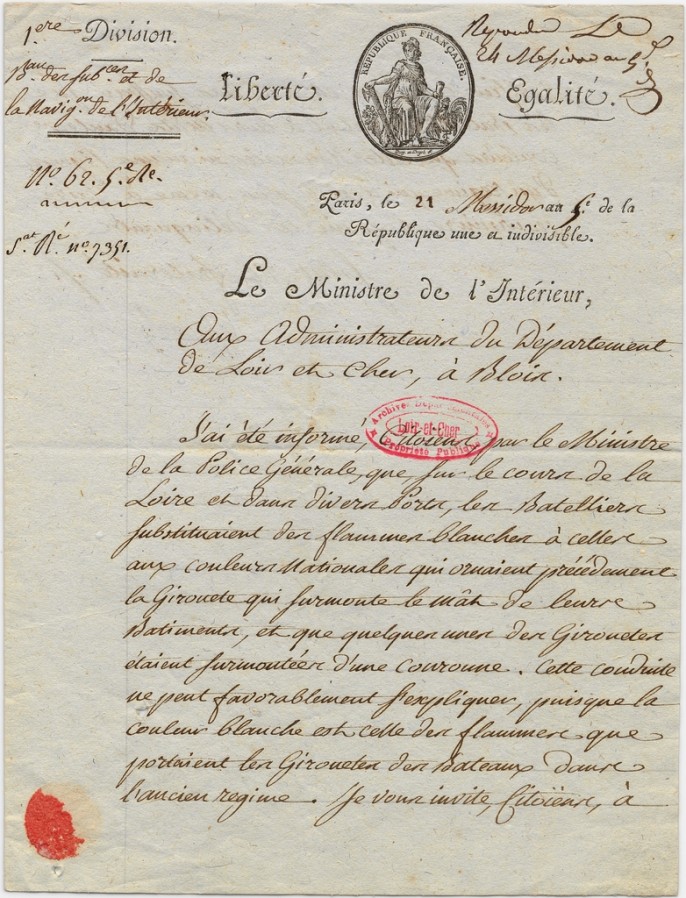 1.ere Division.
Bau des subces et de
la Navigon de l'Intérieur.
No. 62. 5.e Re.
Sat Ré no. 7351.
Liberté.
RÉPUBLIQUE FRANÇAISE.
Egalité.
Repondu Le
24 Messidor an 5.
Paris, le 21 Messidor an 5.e de la
République une et indivisible.
Le Ministre de l'Intérieur,
Aux Administrateurs du Département
de Loir et Cher, à Blois.
Archives Départementales
Loir-et-Cher
Propriété Publique
J'ai été informé, Citoïens, par le Ministre
de la Police Générale, que sur le cours de la
Loire et dans divers Ports, les Batelliers
substituaient des flammes blanches à celles
aux couleurs Nationales qui ornaient précédement
la Girouete qui surmonte le mât de leurs
Batiments, et que quelques unes des Girouetes
étaient surmontées d'une couronne. Cette conduite
ne peut favorablement s'expliquer, puisque la
couleur blanche est celle des flammes que
portaient les Girouetes des Bateaux dans
l'ancien regime. Je vous invite, Citoïens, à